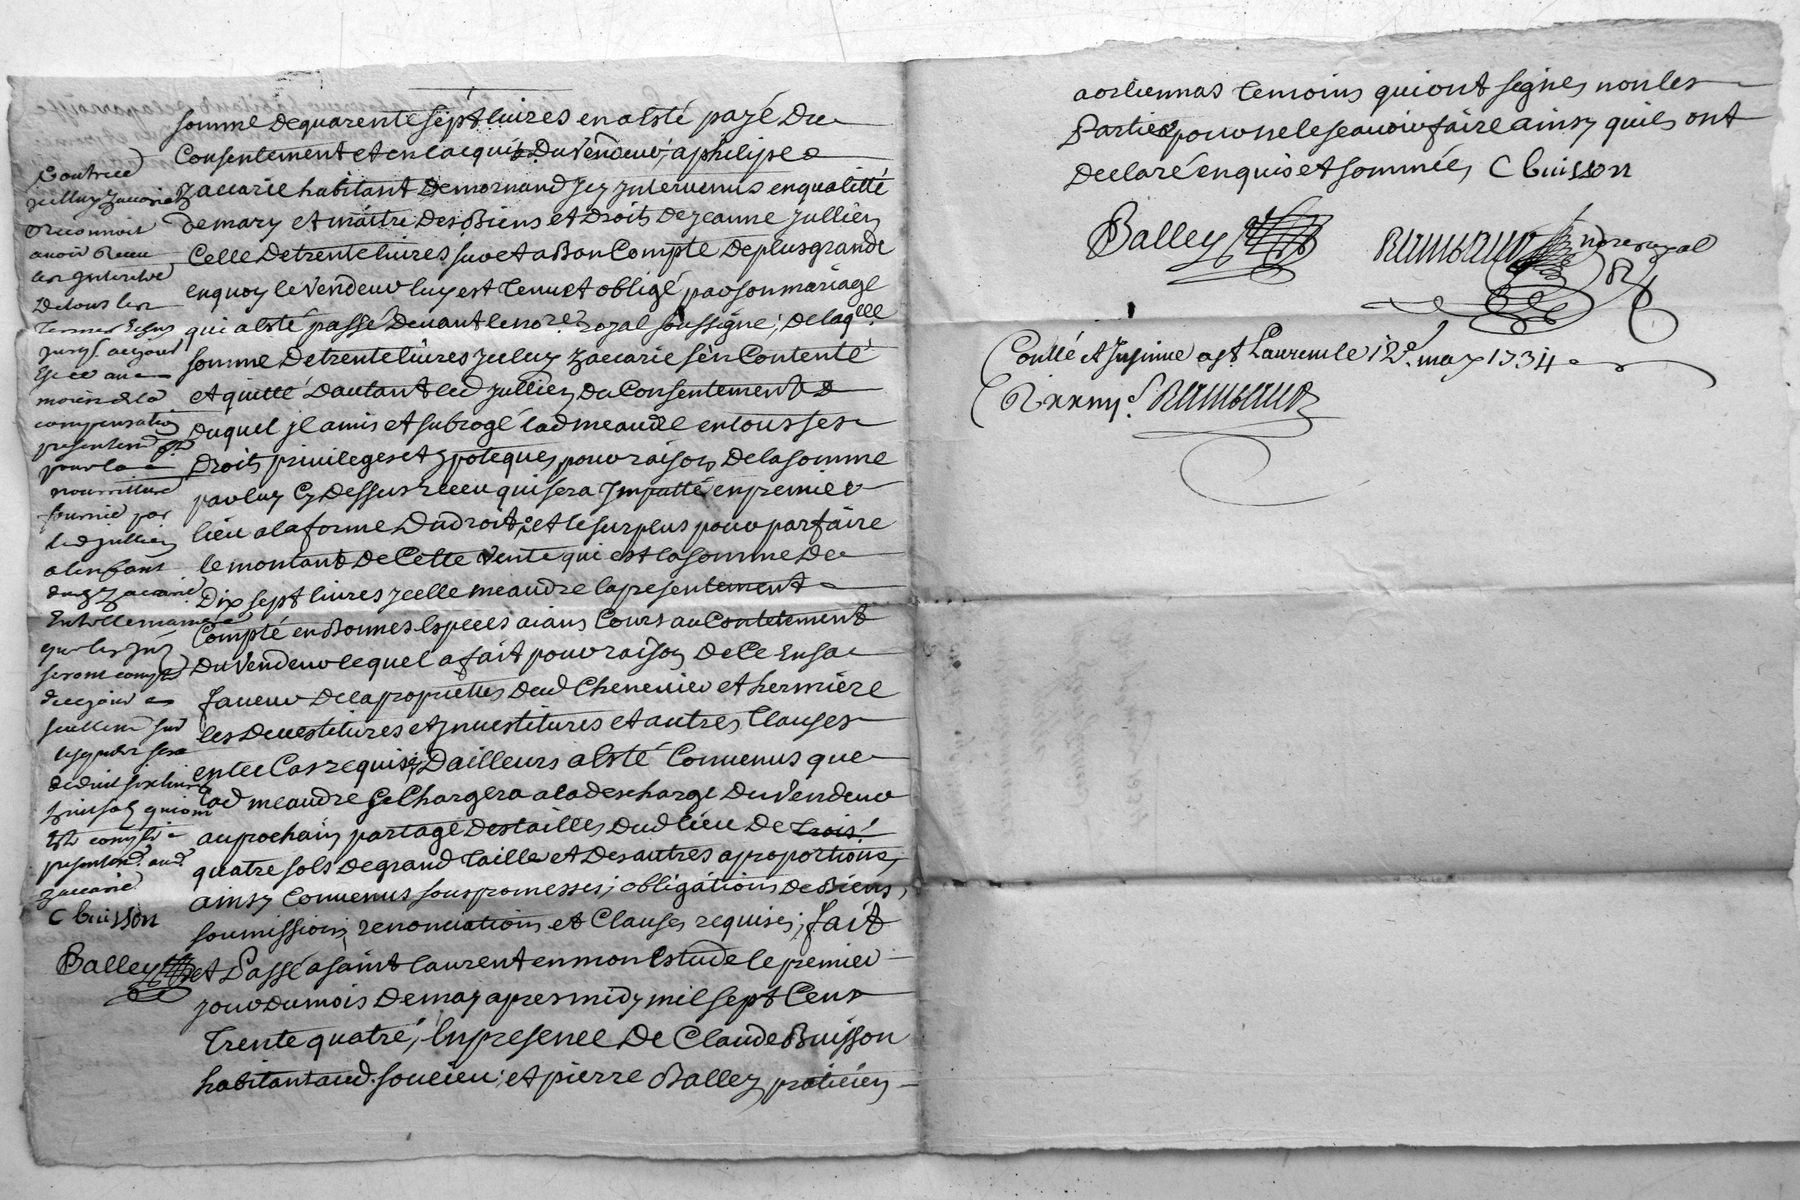 somme de quarente sépt livres en a esté payé du
Consentement et en l'acquit Du Vendeur, a philipe
Zaccarie habitant De mornand jcy jntervenus en qualitté
de mary et maitre Des Biens et Droits de jeanne jullien
Celle De trente livres sur et a Bon Compte De plus grande
en quoy le Vendeur luy est Tenu et obligé par son mariage
qui a esté passé Devant le nore Royal soussigné; De laqlle
somme De trente livres jceluy Zaccarie s'en Contente
et quitte D'autant led jullien Du Consentement
duquel jl a mis et subrogé lad meandre en tous ses
Droits privileges et ypoteques pour raison De la somme
par luy Cy Dessus receu qui sera jmputté en premier
lieu a la forme Du droit, et le surplus pour parfaire
le montant De Cette Vente qui est la somme De
Dix sept livres jcelle meandre l'a presentement
Compté en Bonnes Especes aians Cours au Contetement
Du Vendeur lequel a fait pour raison De Ce En sa
faveur De la proprietté Dud Chenevier et hermiére
les Devestitures et jnvestitures et autres Clauses
en tel Cas requises D'ailleurs a esté Convenus que
lad meandre se Chargera a la descharge Du Vendeur
au prochain partage Des tailles Dud lieu De trois
quatre sols De grand Taille et Des autres a proportions,
ainsy Convenus sous promesses, obligations De Biens,
soumissions, renonciations et Clauses requises, fait
et Passé a saint laurent en mon Estude le premier
jour du mois De may apres midy mil sept Cent
Trente quatre, En presence De Claude Buisson
habitant aud. soucieu, et pierre Balley praticien
Contre
jcelluy Zaccarie
Reconnoit
avoir Receu
les Interets
De tous les
Termes Echus
jusq. aujourd
moiens de la
compensation
pour la
nourriture
fournie par
led jullien
a l'enfant
dud Zaccarie
que les jn
seront
de ce jour
seullemt sur
sera
deduit six livres
huit sols qui ont
Esté compté
presentemt aud
Zaccarie
C buisson
Balley
a orliennas Temoins qui ont signés non les
Parties pour ne le sçavoir faire ainsy quils ont
Declaré enquis et sommées C buisson
Balley Rambaud nore royal
Conllé et Insinué a st Laurent le 12e may 1734
Rambaud